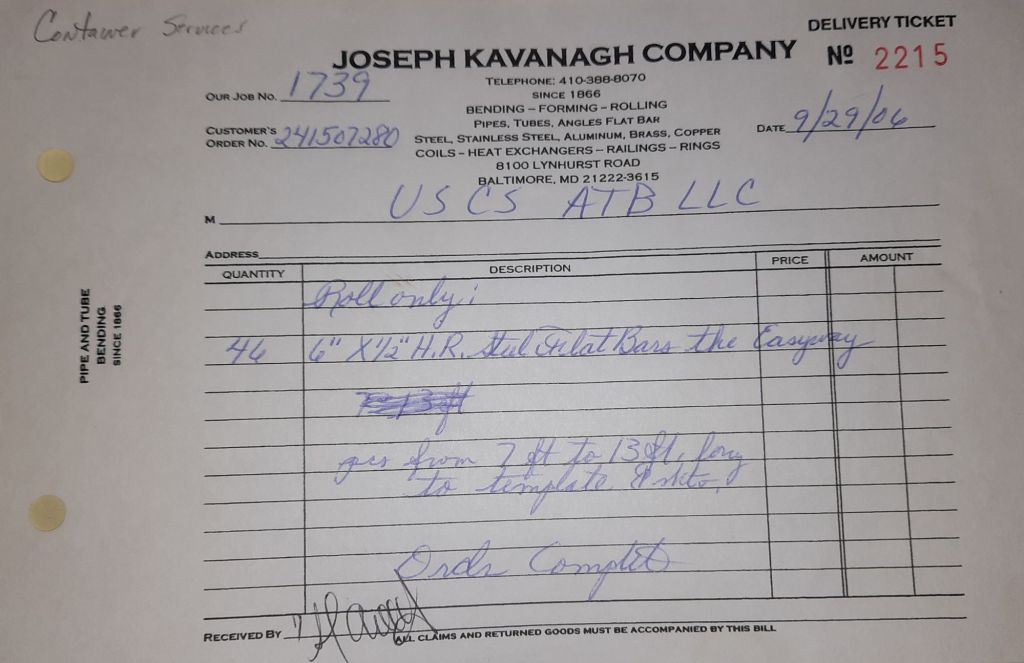 Container Services
DELIVERY TICKET
JOSEPH KAVANAGH COMPANY
Nº 2215
TELEPHONE: 410-388-8070
SINCE 1866
OUR JOB NO. 1739
BENDING – FORMING – ROLLING
PIPES, TUBES, ANGLES FLAT BAR
CUSTOMER'S
ORDER NO. 241507280
STEEL, STAINLESS STEEL, ALUMINUM, BRASS, COPPER
DATE 9/29/06
COILS – HEAT EXCHANGERS – RAILINGS – RINGS
8100 LYNHURST ROAD
BALTIMORE, MD 21222-3615
M US CS ATB LLC
ADDRESS
QUANTITY DESCRIPTION PRICE AMOUNT
Roll only:
46 6" X 1/2" H.R. Steel Flat Bars the Easyway
13 ft
goes from 7 ft to 13 ft. long
to template &
Order Complete
RECEIVED BY
ALL CLAIMS AND RETURNED GOODS MUST BE ACCOMPANIED BY THIS BILL
PIPE AND TUBE
BENDING
SINCE 1866